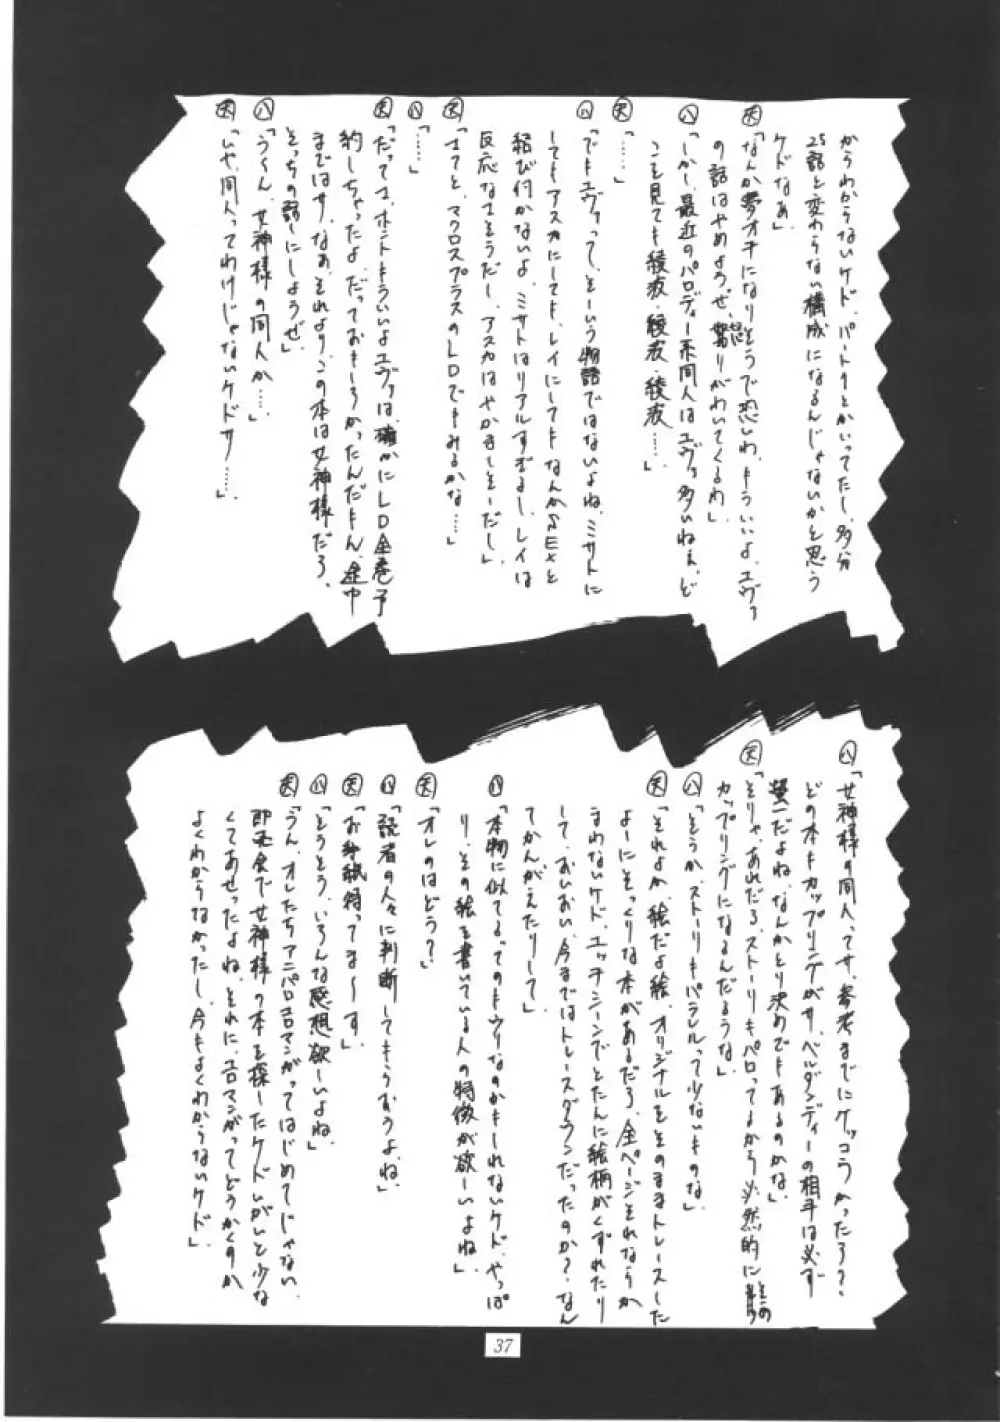 からわからないケド、パートⅡとかいってたし、多分
25話と変わらない構成になるんじゃないかと思う
ケドなぁ」
天「なんか夢オチになりそうで恐いわ、もういいよ、エヴァ
の話はやめようぜ、怒りがわいてくるわ」
八「しかし、最近のパロディー系同人はエヴァ多いねぇ、ど
こを見ても綾波・綾波・綾波……」
天「……」
八「でもエヴァって、そーいう物語ではないよね、ミサトに
してもアスカにしても、レイにしてもなんかSEXと
結び付かないよ、ミサトはリアルすぎるし、レイは
反応なさそうだし、アスカはやかましそーだし」
天「さてと、マクロスプラスのLDでもみるかな……」
八「……」
天「だってさ、ホントもういいよエヴァは、確かにLD全巻予
約しちゃったよ、だっておもしろかったんだもん、途中
まではサ、なぁ、それより、この本は女神様だろ、
そっちの話にしようぜ」
八「う〜ん、女神様の同人か……」
天「いや、同人ってわけじゃないケドサ……」
八「女神様の同人ってサ、参考までにケッコうかったろ?
どの本もカップリングがサ、ベルダンディーの相手は必ず
螢一だよね、なんかとり決めでもあるのかな」
天「そりゃ、あれだろ、ストーリもパロってるから必然的にその
カップリングになるんだろうな」
八「そうか、ストーリもパラレルって少ないものな」
天「それよか、絵だよ絵、オリジナルをそのままトレースした
よーにそっくりな本があるだろ、全ページそれならか
まわないケド、エッチシーンでとたんに絵柄がくずれたり
して、おいおい、今まではトレースダウンだったのか?なん
てかんがえたりして」
八「本物に似てるってのもウリなのかもしれないケド、やっぱ
り、その絵を書いている人の特徴が欲しいよね」
天「オレのはどう?」
八「読者の人々に判断してもらおうよ、ね」
天「お手紙待ってま〜す」
八「そうそう、いろんな感想欲しいよね」
天「うん、オレたちアニパロエロマンガってはじめてじゃない、
即売会で女神様の本を探したケド、いがいと少な
くてあせったよね、それに、エロマンガってどうかくのか
よくわからなかったし、今もよくわからないケド」
37